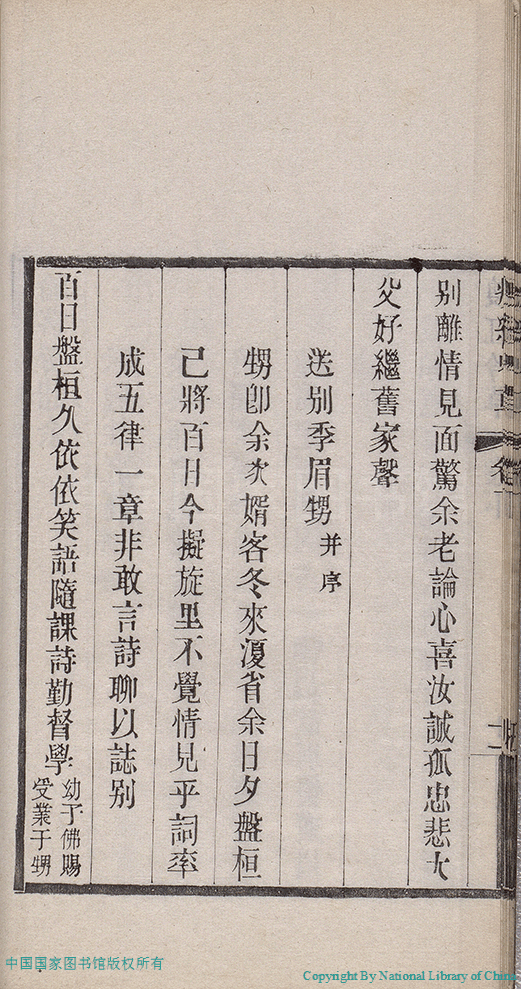 別離情見面驚余老論心喜汝誠孤忠悲大
父好繼舊家聲
送別季眉甥并序
甥卽余次婿客冬來滬省余日夕盤桓
已將百日今擬旋里不覺情見乎詞率
成五律一章非敢言詩聊以誌别
百日盤桓久依依笑語隨課詩勤督學幼子佛賜
受業于甥
中国国家图书馆版权所有
Copyright By National Library of China